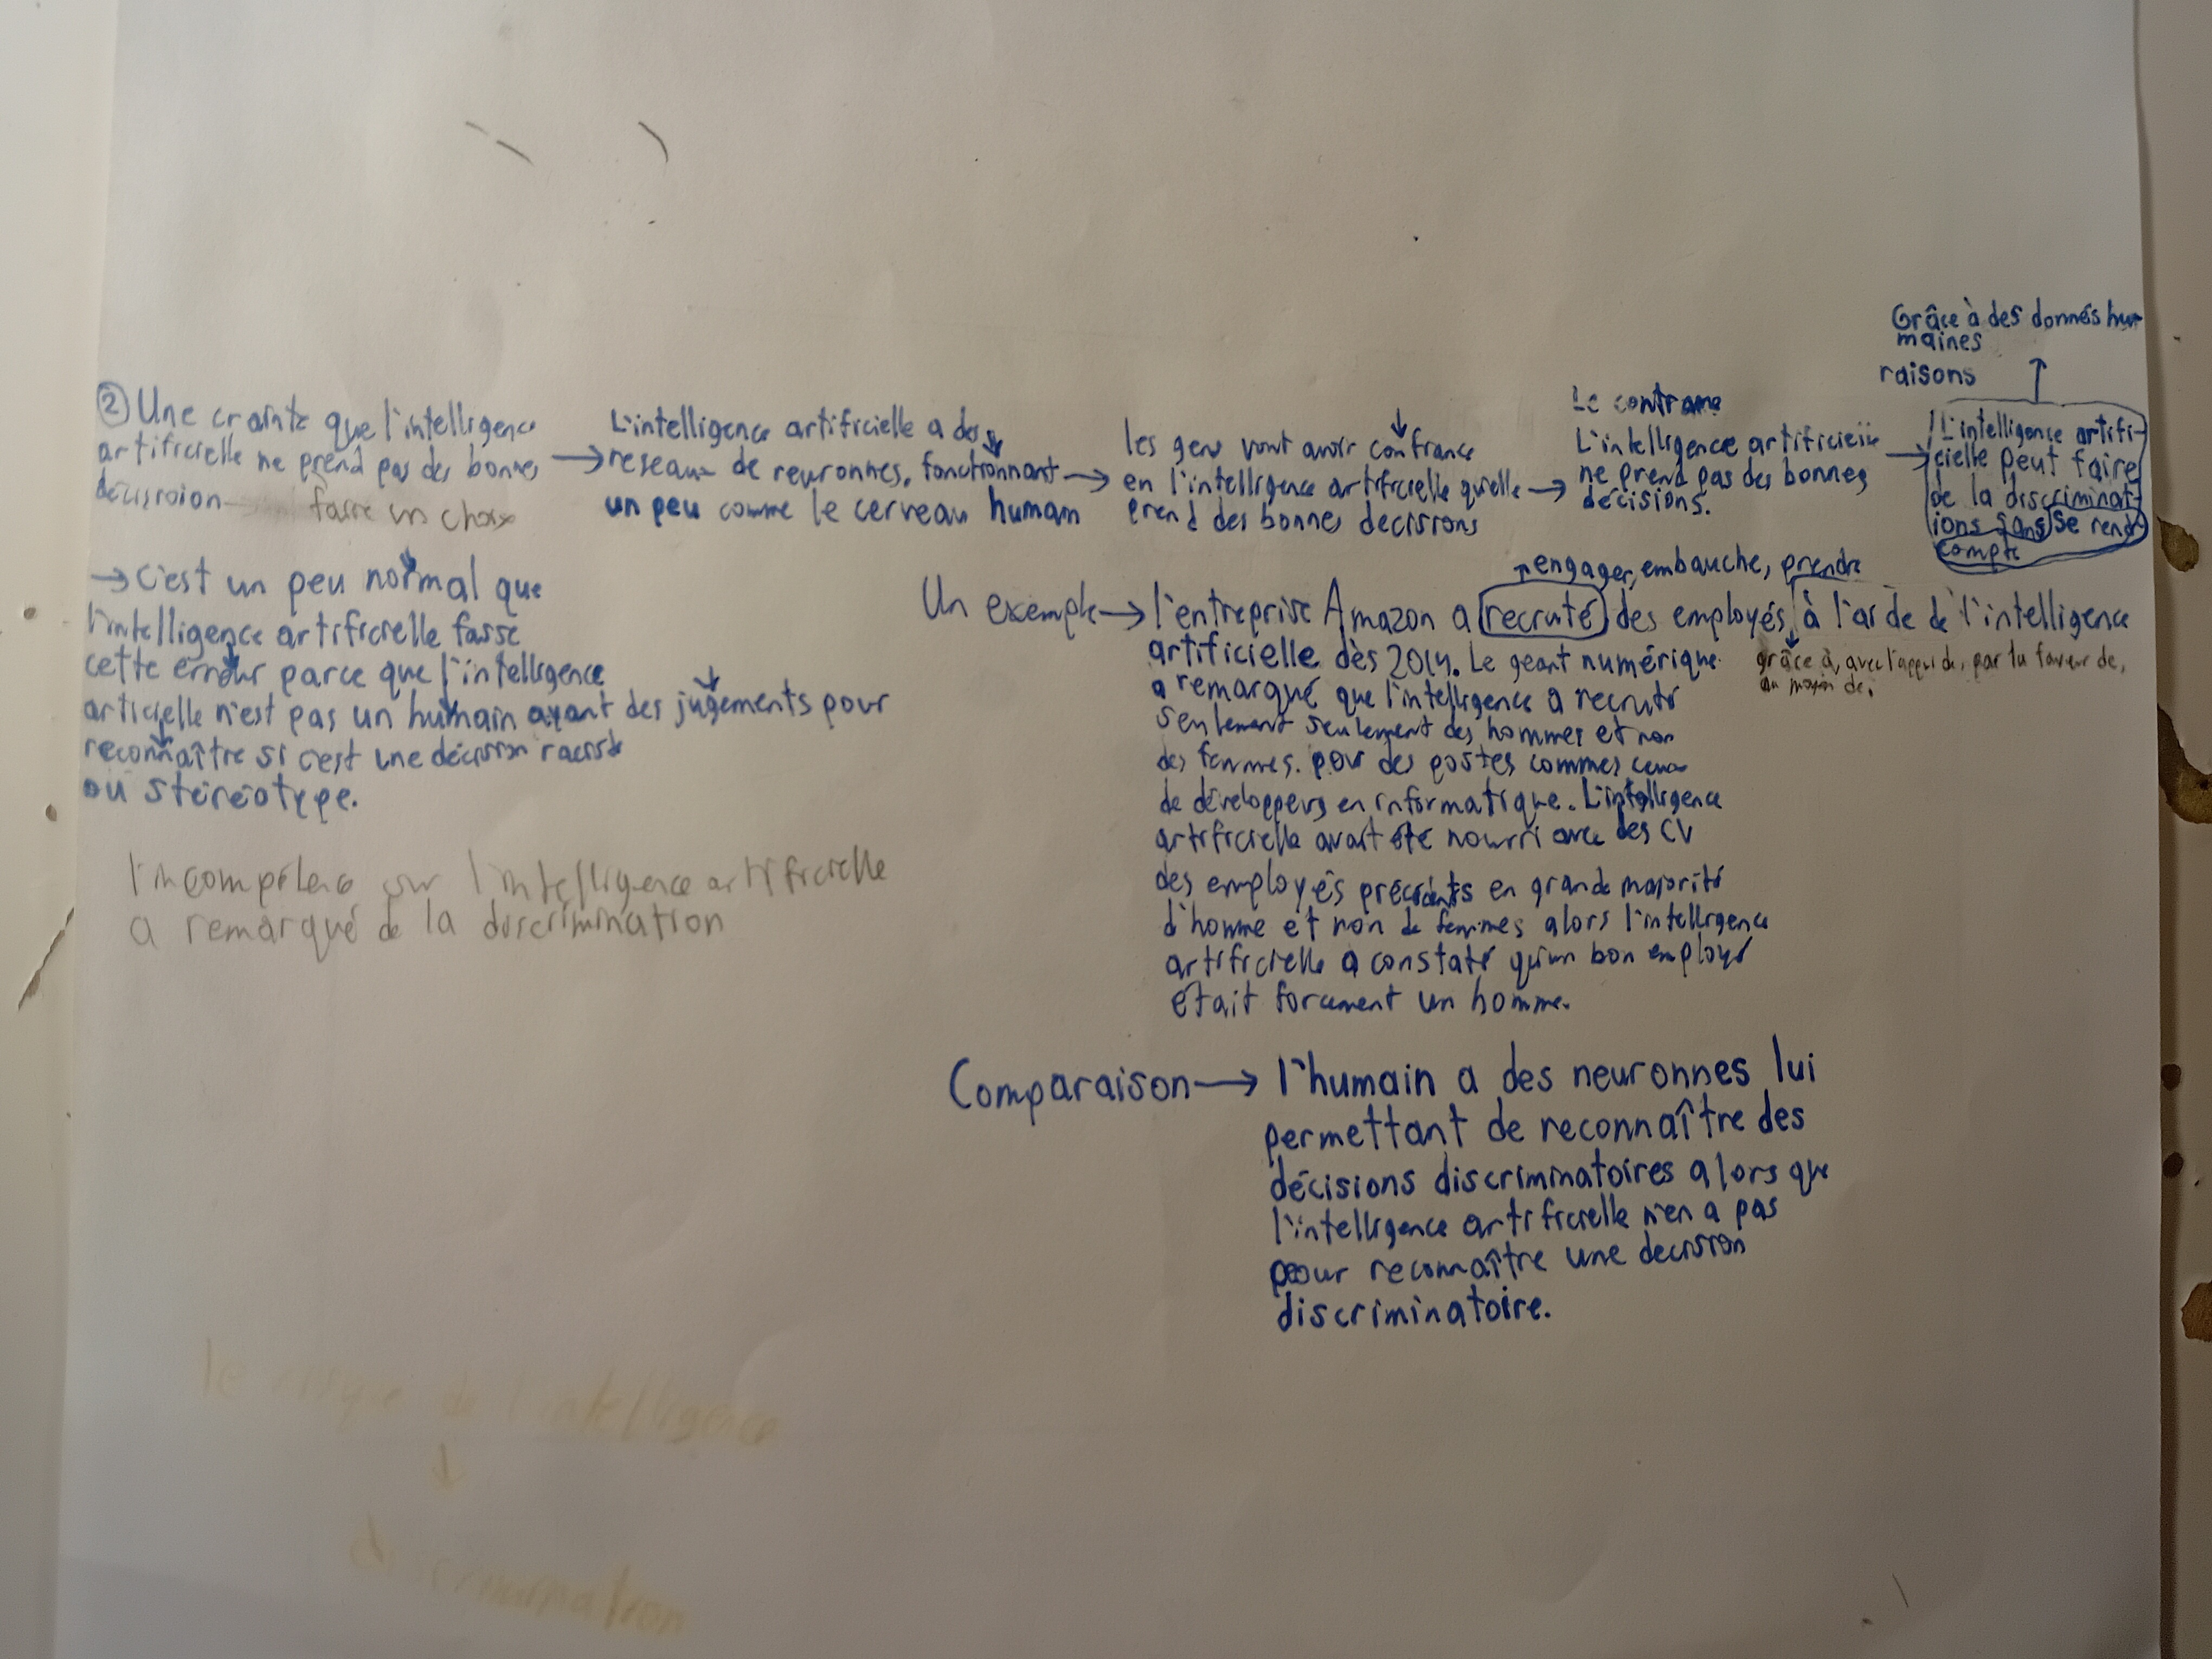 ② Une crainte que l'intelligence
artificielle ne prend pas des bonnes
décision
faire un choix
L'intelligence artificielle a des
→ reseaux de neuronnes, fonctionnant
un peu comme le cerveau humain
→ les gens vont avoir confiance
en l'intelligence artificielle qu'elle
prend des bonnes decisions
Le contraire
→ L'intelligence artificielle
ne prend pas des bonnes
décisions.
Grâce à des donnés hu-
maines
raisons
→ L'intelligence artifi-
cielle peut faire
de la discriminat-
ions sans se rend
compte
→ C'est un peu normal que
l'intelligence artificielle fasse
cette erreur parce que l'intelligence
articielle n'est pas un humain ayant des jugements pour
reconnaître si c'est une décision raciste
ou stéréotype.
sur l'intelligence artificielle
a remarqué de la discrimination
engager, embauche, prendre
Un exemple → l'entreprise Amazon a recruté des employés à l'aide de l'intelligence
artificielle dès 2014. Le geant numérique
a remarqué que l'intelligence a recruté
seulement seulement des hommes et non
des femmes. pour des postes commes ceux
de développeurs en informatique. L'intelligence
artificielle avait été nourri avec des CV
des employés précédents en grande majorité
d'homme et non de femmes alors l'intelligence
artificielle a constaté qu'un bon employé
était forcement un homme.
grâce à, avec l'appui de, par la faveur de,
au moyen de,
Comparaison → l'humain a des neuronnes lui
permettant de reconnaître des
décisions discriminatoires alors que
l'intelligence artificielle n'en a pas
pour reconnaître une decision
discriminatoire.
le risque de l'intelligence
↓
discrimination